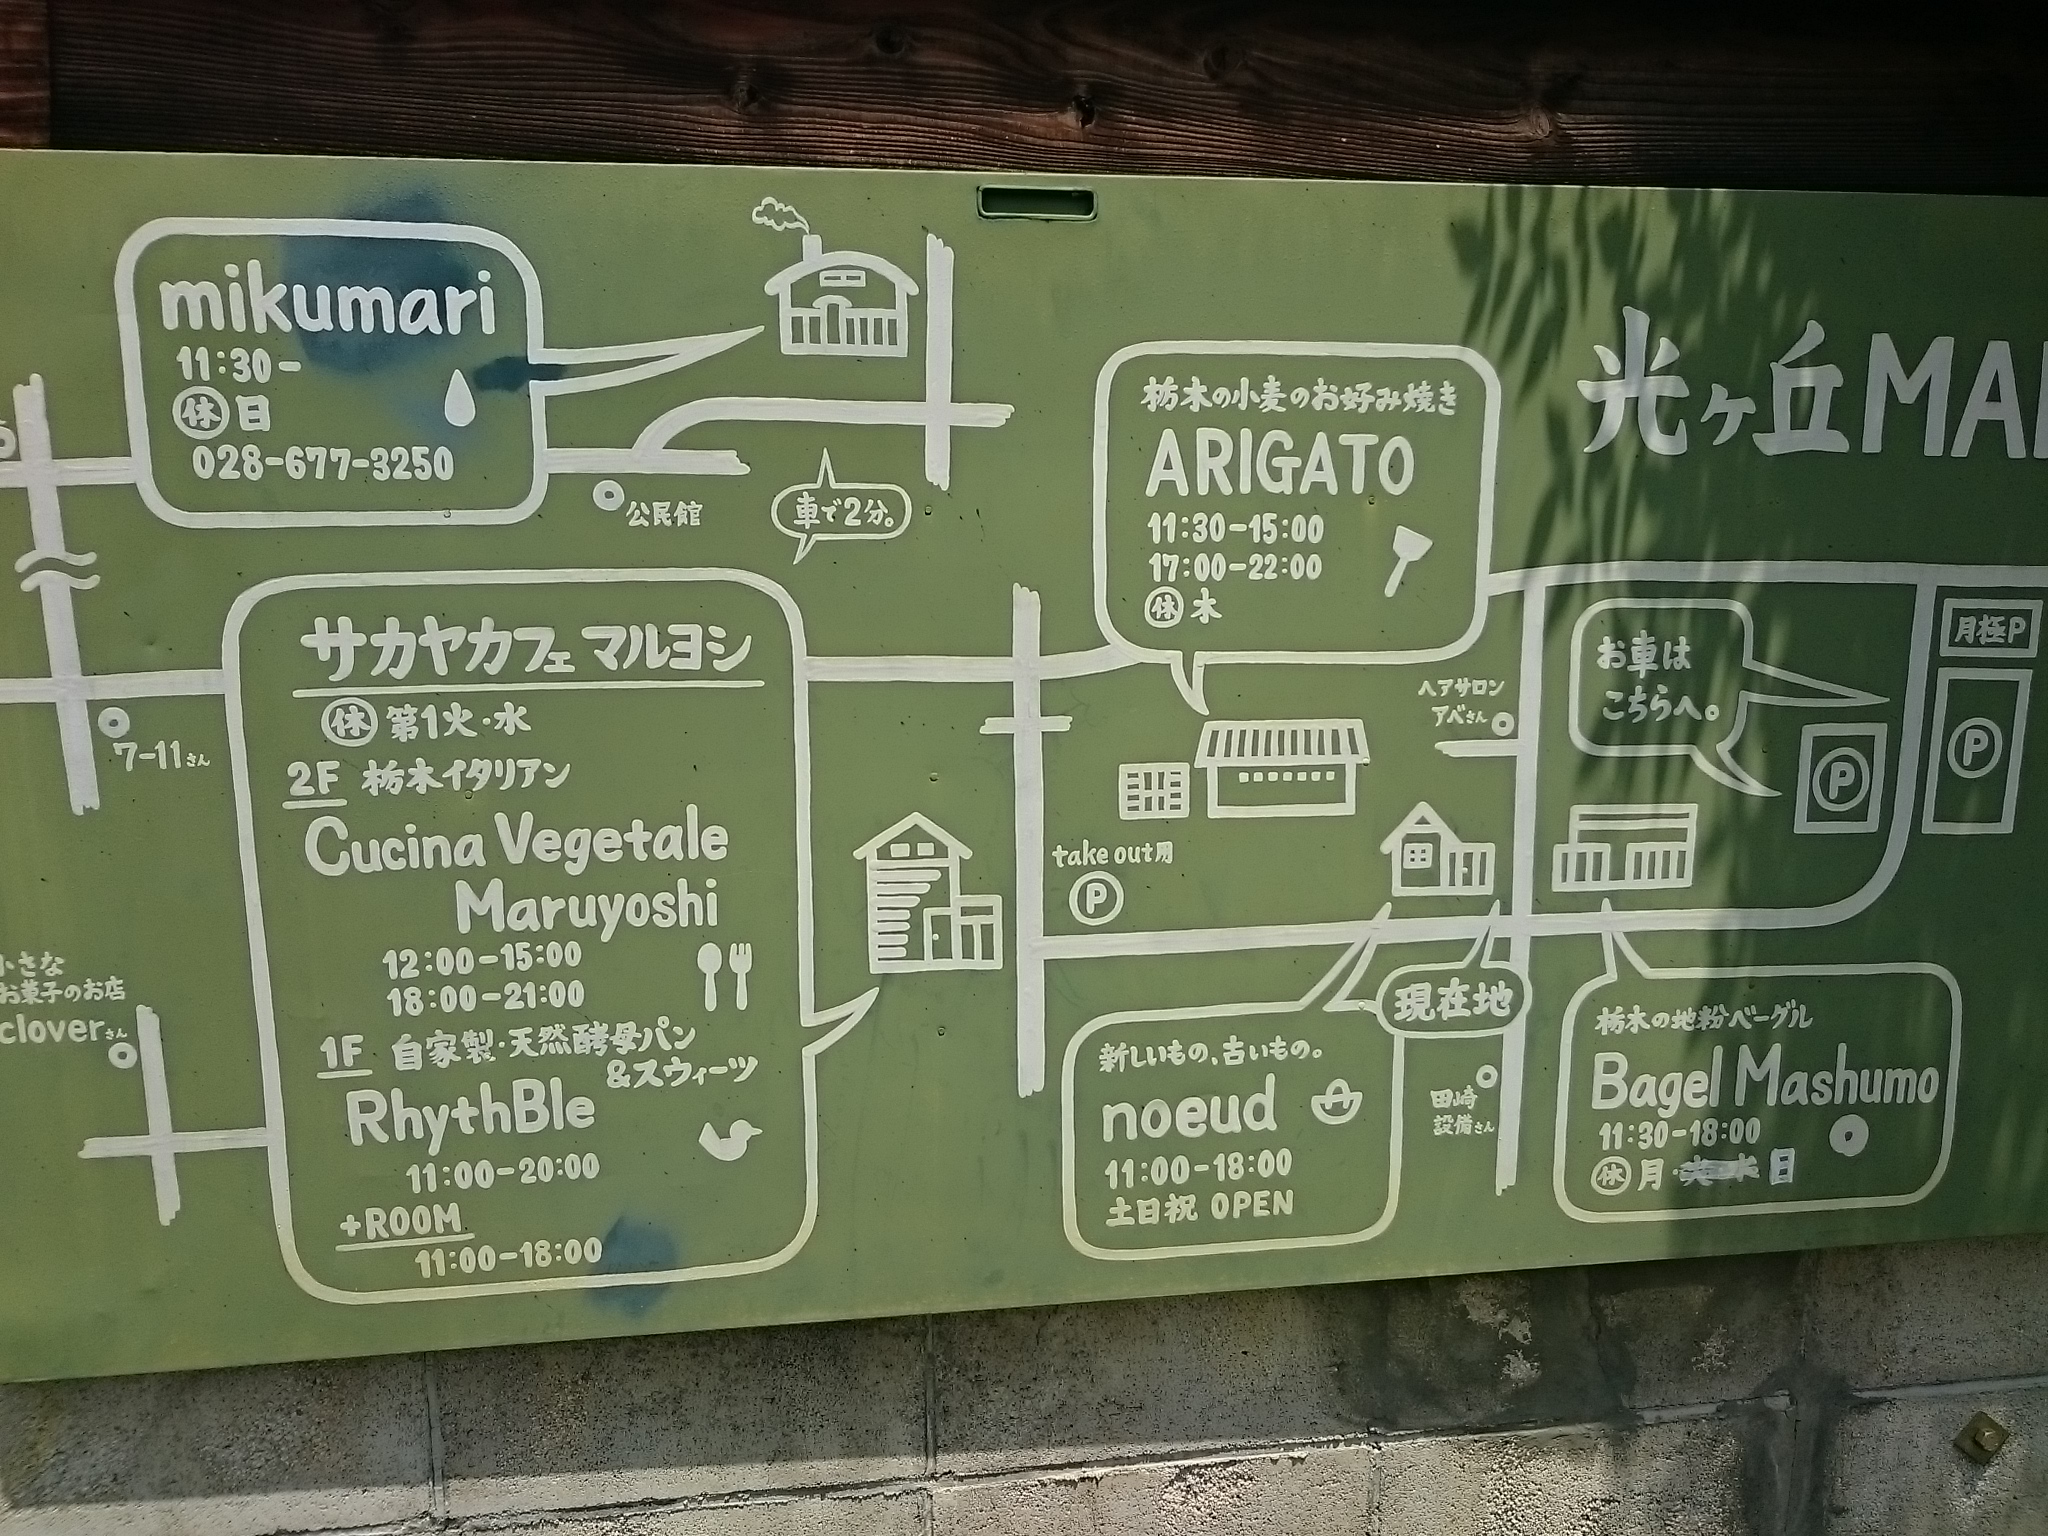 mikumari
11:30-
休日
028-677-3250
公民館
車で2分。
光ヶ丘MA
栃木の小麦のお好み焼き
ARIGATO
11:30-15:00
17:00-22:00
休木
サカヤカフェ マルヨシ
休第1火・水
2F 栃木イタリアン
Cucina Vegetale
Maruyoshi
12:00-15:00
18:00-21:00
1F 自家製・天然酵母パン
&スウィーツ
RhythBle
11:00-20:00
+ROOM
11:00-18:00
7-11さん
小さな
お菓子のお店
cloverさん
take out用
P
ヘアサロン
アベさん
お車は
こちらへ。
月極P
P
P
現在地
新しいもの、古いもの。
noeud
11:00-18:00
土日祝 OPEN
田崎
設備さん
栃木の地粉ベーグル
Bagel Mashumo
11:30-18:00
休月・日